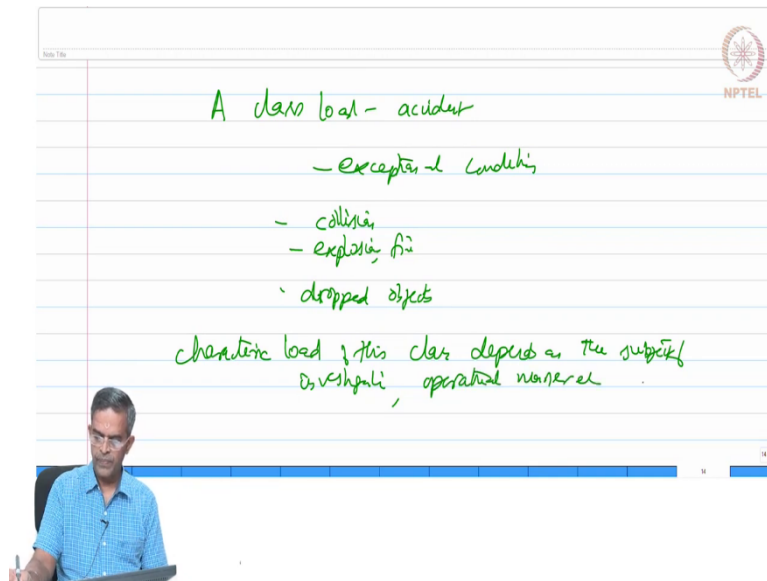 Note Title
NPTEL
A class load - accident
- exceptional condition
- collision
- explosion, fire
dropped objects
characteristic load of this class depends on the
operational
14
14